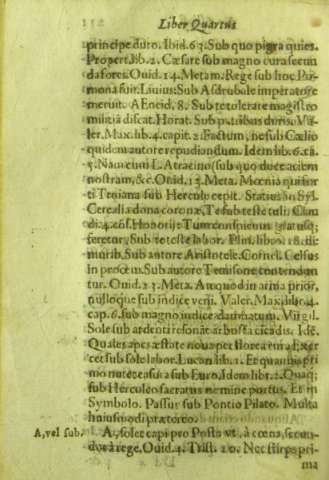 Liber Quartus
principe duro. Ibid. 67. Sub quo pigra quies.
Propert. lib. 2. Cæsare sub magno cura secun
da fores. Ouid. 14. Metam. Rege sub hoc Pu-
mona fuit. Liuius: Sub Asdrubale imperatore
meruit. AEneid. 8. Sub te tolerare magistro
militiã discat. Horat. Sub patribus duris. Va-
ler. Max. lib. 4. capit. 2. Factum, ne sub Cælio
quidem autore repudiandum. Idem lib. 6. ca.
5. Nam cum L. Atracino (sub quo duce aciem
nostram, &c. Ouid. 15. Met. Mœnia qui for-
ti sub Hercule cepit. Statius in Syl.
Cerealia dona coronæ, Te sub teste tuli. Clau
di. 4. cõs. Honorij: Tum conspicuus gratusq;
feretur, Sub te teste labor. Plin. libro. 18. di-
murib. Sub autore Aristotele. Cornel. Celsus
in proœm. Sub autore Temisone contendun
tur. Ouid. 13. Meta. Atq; uod in arma prior,
nulloque sub indice veni. Valer. Max. lib. 4.
cap. 6. sub magno iudice damnatum. Virgil.
Sole sub ardenti resonãt arbusta cicadis. Idẽ
Quales apes æstate noua per florea rura Exer
cet sub sole labor. Lucan lib. 1. Et quantis pri
mo nutet casura sub Euro. Idem lib. 2. Quaq;
sub Herculeo sacratus nomine portus. Et in
Symbolo. Passus sub Pontio Pilato. Multa
huiusmodi prætereo.
A, vel sub. A, solet capi pro Post: vt, à cœna, secun-
dus à rege. Ouid. 4. Trist. 10. Nec stirps pri-
ma